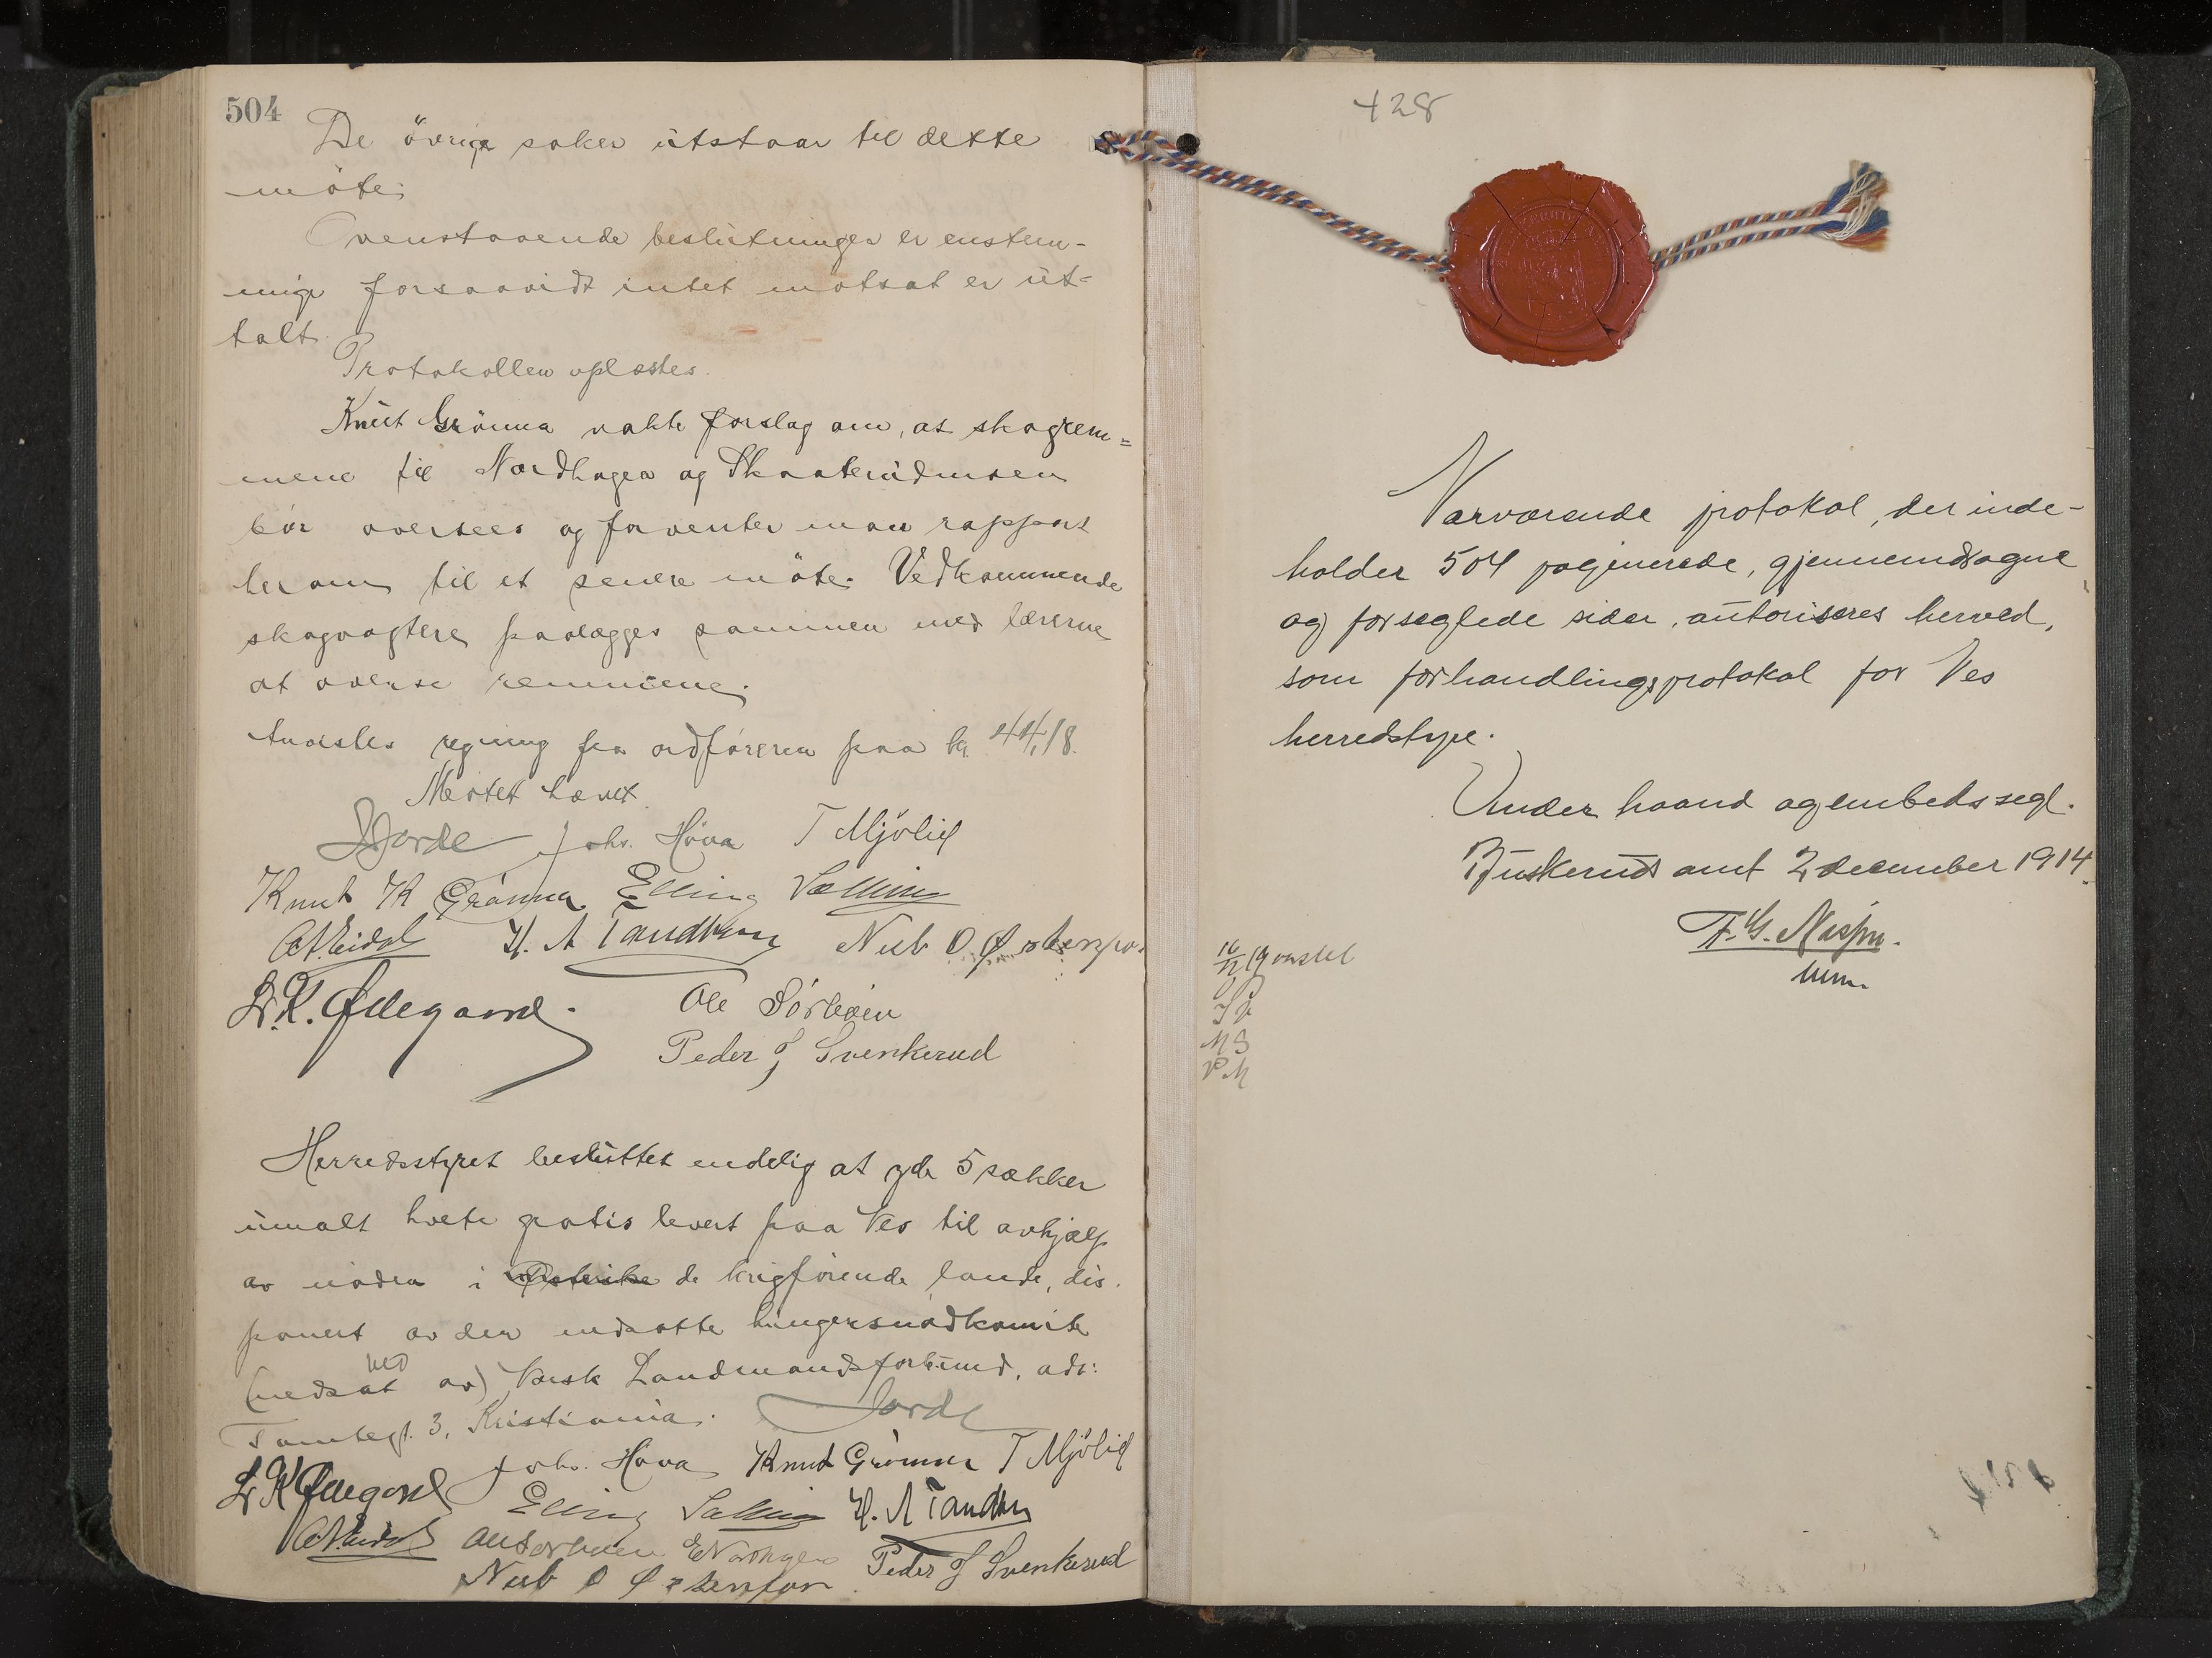 504
De övrige saker utstaar til dette
möte.
Ovenstaaende beslutninger er enstem-
mige forsaavidt intet motsat er ut-
talt.
Protokollen oplæstes.
Knut Grönna vakte forslag om, at skogrem=
mene til Nordhagen og
bör oversees og forventer man rapport
herom til et senere möte. Vedkommende
skogvogtere paalægges sammen med lærerne
at overse remmene.
Anvistes regning fra ordföreren paa kr. 44,18.
Mötet hævet.
Jorde Johs. Höva T Mjölid
Knut K Grønna Elling Sælling
H. A Tandberg Nub O
L. K. Ødegaard. Ole Sörbøen
Peder J Svenkerud
Herredsstyret besluttet endelig at yde 5 sækker
umalt hvete gratis levert paa Nes til avhjælp
av nöden i de krigförende lande, dis-
ponert av den nedsatte hungersnödkomite
(nedsat ved av) Norsk Landmandsforbund, adr:
Tomtegt. 3, Kristiania. Jorde
Johs. Höva Knut Grönna T Mjölid
L K Ødegaard Elling Sælling H. A Tandberg
Peder J Svenkerud
Nub O
428
Nærværende protokol, der inde-
holder 504 paginerede, gjennemdragne
og forseglede sider, autoriseres herved,
som forhandlingsprotokol for Nes
herredstyre.
Under haand og embedssegl.
Buskeruds amt 2 december 1914.